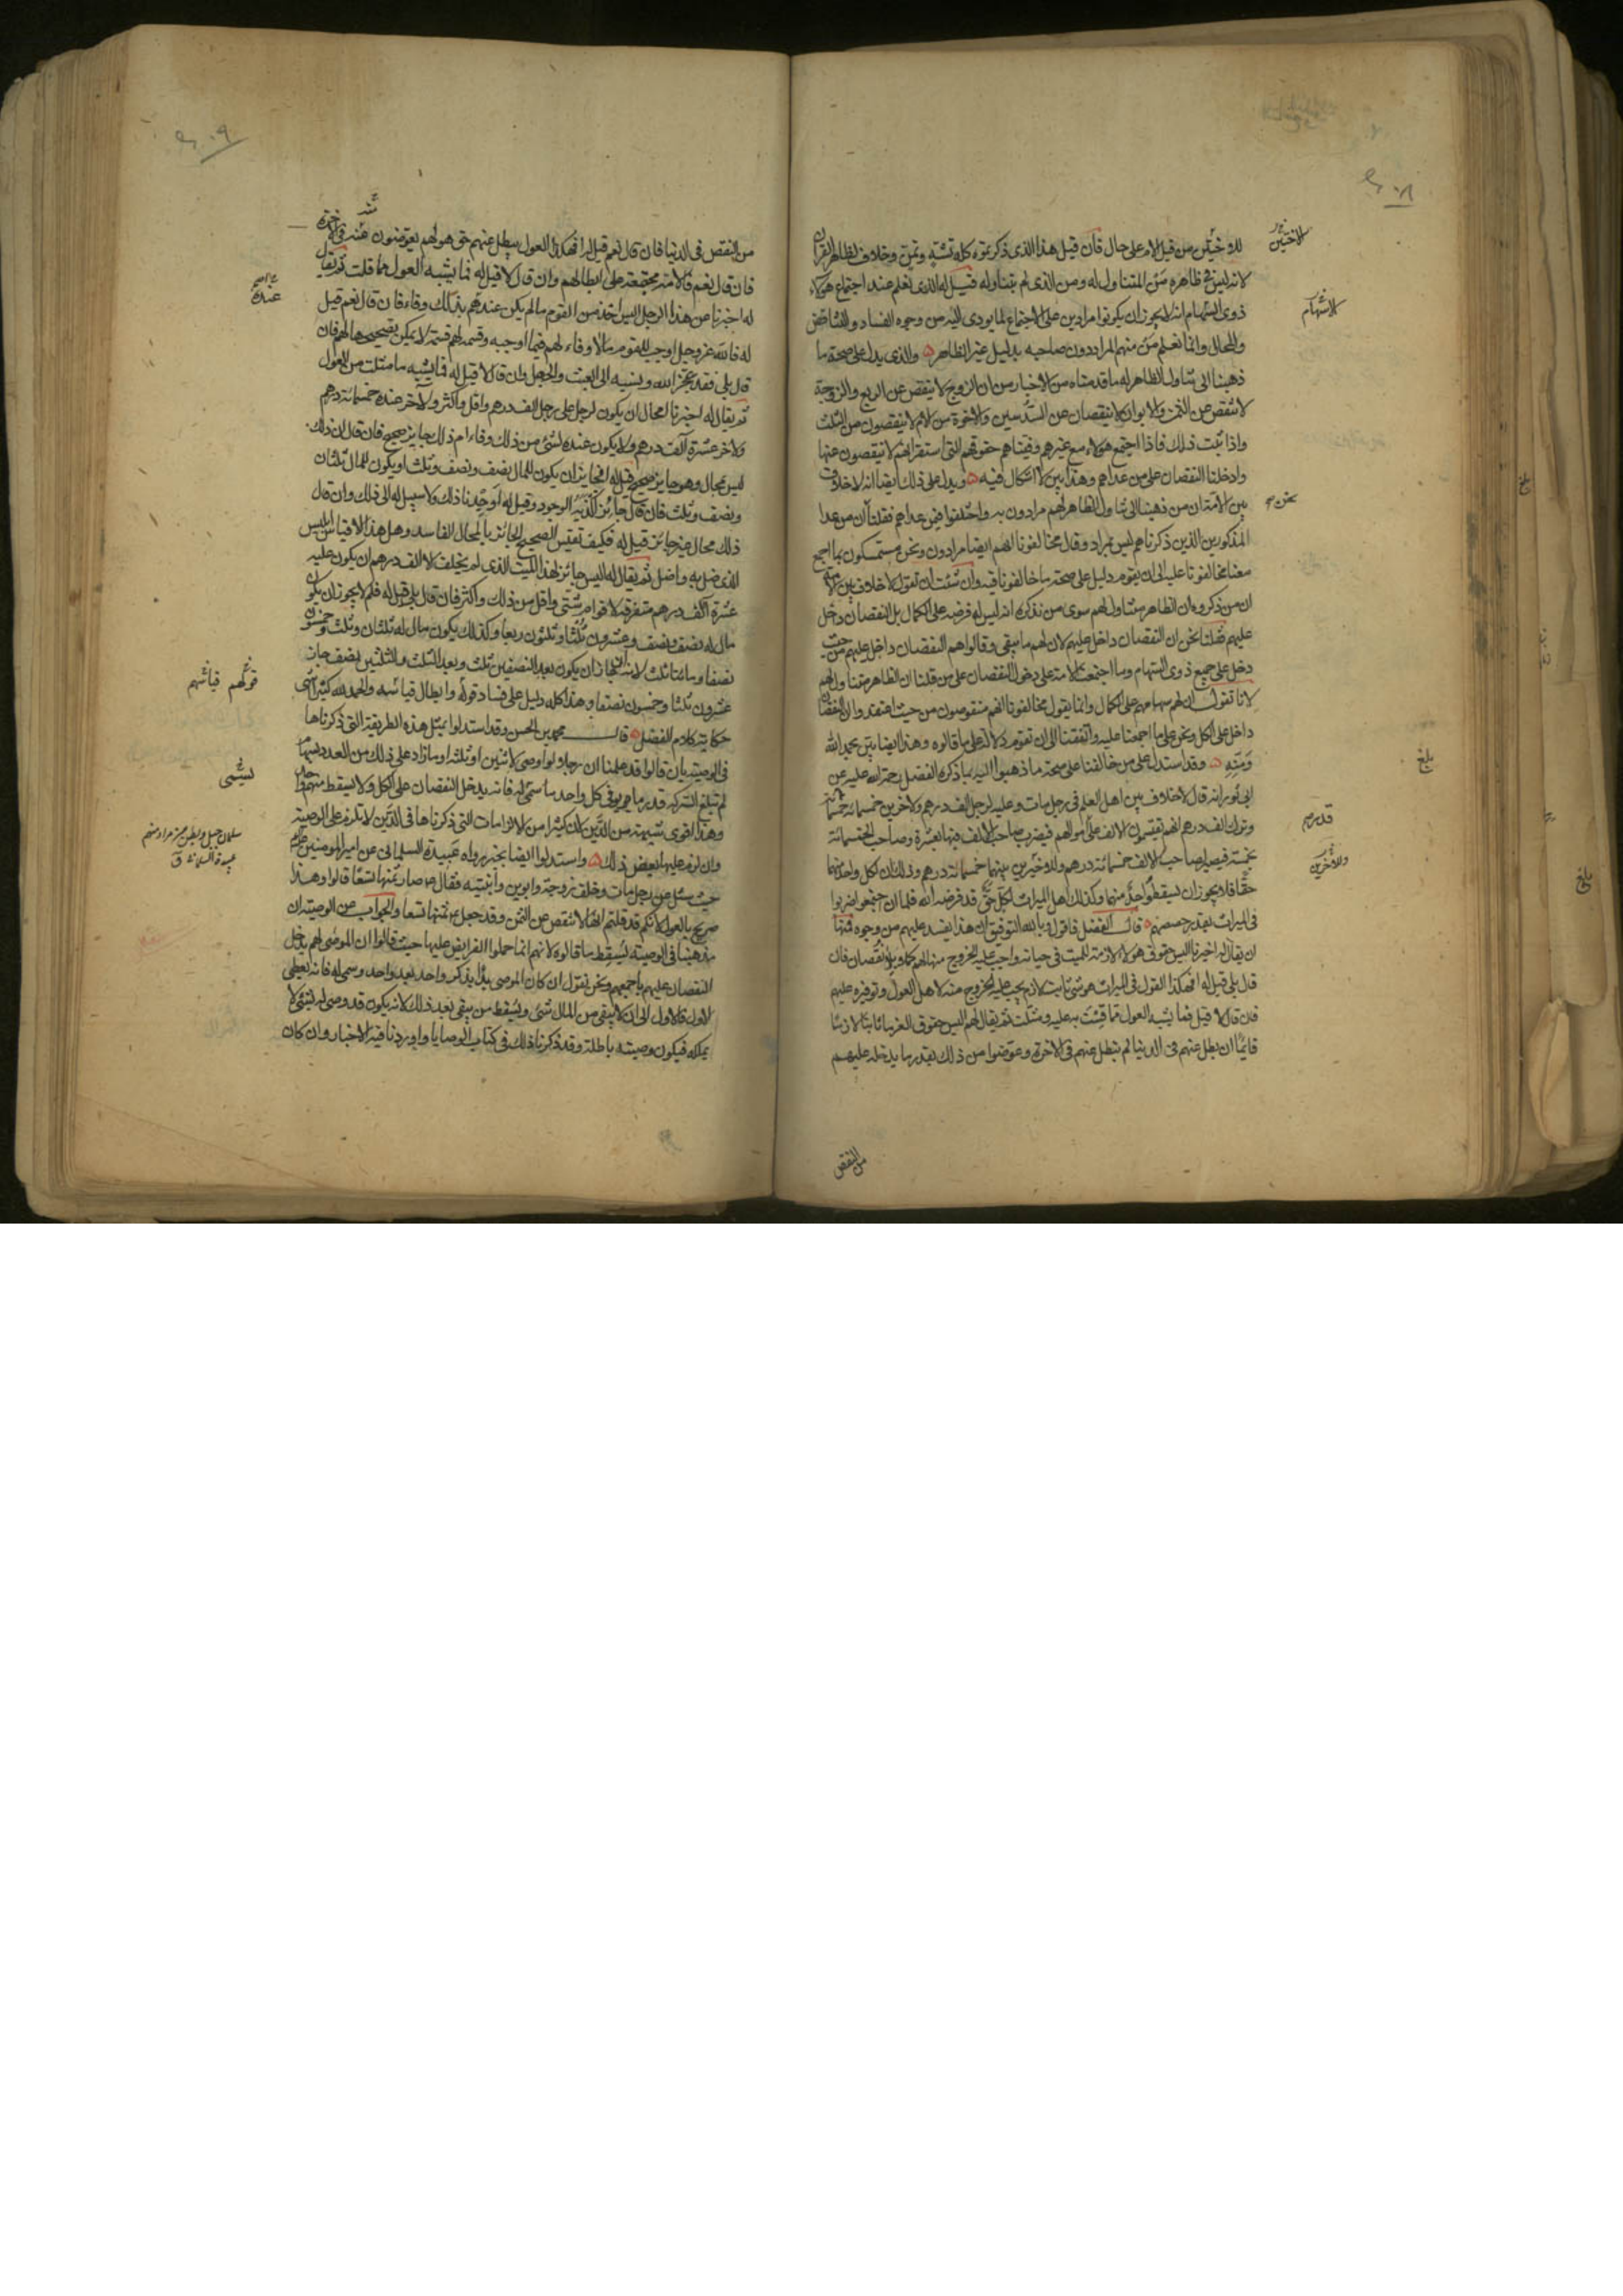 للاوخيّن من قبل الام على حال فان قيل هذا الذى ذكرتموه كله تشبه وتمن وخلاف لظاهر القران
لانه ليس فى ظاهره من المتناول له ومن الذى لم يتناوله قيل له الذى نعلم عند اجتماع هؤلاء
ذوى السهام انه لا يجوز ان يكونوا مرادين على الاجتماع لما يودى اليه من وجوه الفساد والتناقض
والمحال وانما نعلم من منهم المراد دون صاحبه بدليل غير الظاهر والذى يدل على صحة ما
ذهبنا الى تناول الظاهر له ما قدمناه من الاخبار من ان الزوج لا ينقص عن الربع والزوجة
لا تنقص عن الثمن والابوان لا ينقصان عن السدسين والاخوة من الام لا ينقصون من الثلث
واذا ثبت ذلك فاذا اجتمع هؤلاء مع غيرهم وفيناهم حقوقهم التى استقر انهم لا ينقصون عنها
وادخلنا النقصان على من عداهم وهذا بين لا اشكال فيه ويدل على ذلك ايضا انه لا خلاف
بين الامة ان من ذهبنا الى تناول الظاهر لهم مرادون به واختلفوا فيمن عداهم فقلنا ان من عدا
المذكورين الذين ذكرناهم ليس بمراد وقال مخالفونا انهم ايضا مرادون ونحن متمسكون بما اجمع
معنا مخالفونا عليه الى ان يقوم دليل على صحة ما خالفونا فيه وان شئت ان تقول لا خلاف بين الامة
ان من ذكروه ان الظاهر متناول لهم سوى من نذكره انه ليس له فرضه على الكمال بل النقصان دخل
عليهم فقلنا نحن ان النقصان داخل عليهم لان لهم ما يبقى وقالوا هم النقصان داخل عليهم من حيث
دخل على جميع ذوى السهام وما اجتمعت الامة على دخول النقصان على من قلنا ان الظاهر متناول لهم
لانا نقول ان لهم سهامهم على الكمال وانما يقول مخالفونا انهم منقوصون من حيث اعتقدوا ان النقصان
داخل على الكل ونحن على ما اجمعنا عليه واتفقنا الى ان تقوم دلالة على ما قالوه وهذا ايضا بين بحمد الله
ومنه وقد استدل على من خالفنا على صحة ما ذهبوا اليه بما ذكره الفضل رحمة الله عليه عن
ابى ثور انه قال لا خلاف بين اهل العلم فى رجل مات وعليه لرجل الف درهم ولاخرين خمسمائة خمسمائة
وترك الف درهم انهم يقتسمون الالف على اموالهم فيضرب صاحب الالف فيها بعشرة وصاحب الخمسمائة
بخمسة فيصير لصاحب الالف خمسمائة درهم وللاخرين بينهما خمسمائة درهم وذلك ان لكل واحد منهما
حقا فلا يجوز ان يسقط واحد منهما وكذلك اهل الميراث لكل حق قد فرضه الله فلما ان اجتمعوا ضربوا
فى الميراث بقدر حصصهم قال الفضل فاقول وبالله التوفيق ان هذا يفسد عليهم من وجوه فمنها
ان يقال له اخبرنا اليس حقوق هؤلاء لازمة للميت فى حياته واجب عليه الخروج منها لهم كملا وبلا نقصان فان
قال بلى قيل له افهكذا القول فى الميراث هو شئ ثابت لازم يجب عليه الخروج منه لاهل العول وتوفيره عليهم
فان قال لا قيل فما يشبه العول مما قيست به عليه ومثلت ثم يقال لهم اليس حقوق الغرماء ثابتا لازما
قايما ان بطل عنهم فى الدنيا لم يبطل عنهم فى الاخرة وعوضوا من ذلك بقدر ما يدخله عليهم
من النقص
للاختين
السهام
نحن
بلغ
قدرهم
وللاخرين
من النقص فى الدنيا فان قال نعم قيل له افهكذا العول يبطل عنهم حتى هو لهم يعوضون عنه فى الاخرة
فان قال نعم فالامة مجتمعة على ابطالهم وان قال لا قيل له فما يشبه العول مما قلت ثم يقال
له اخبرنا عن هذا الرجل اليس اخذ من القوم ما لم يكن عندهم بذلك وفاء فان قال نعم قيل
له فالله عز وجل اوجب للقوم مالا وفاء لهم فيما اوجبه وقسمه لهم قسمة لا يمكن تصحيحها لهم فان
قال بلى فقد عجز الله ونسبه الى العبث والجهل وان قال لا قيل له فما يشبه ما مثلت من العول
ثم يقال له اخبرنا امحال ان يكون لرجل على رجل الف درهم واقل واكثر ولاخر عنده خمسمائة درهم
ولاخر عشرة الف درهم ولا يكون عنده لشئ من ذلك وفاء ام ذلك جايز صحيح فان قال ان ذلك
ليس بمحال وهو جايز صحيح قيل له افجايز ان يكون للمال نصف ونصف وثلث او يكون للمال ثلثان
ونصف وثلث فان قال جائز اكذبه الوجود وقيل له اوجدنا ذلك ولا سبيل له الى ذلك وان قال
ذلك محال غير جائز قيل له فكيف تقيس الصحيح الجائز بالمحال الفاسد وهل هذا الا قياس ابليس
الذى ضل به واضل ثم يقال له اليس جايز لهذا الميت الذى لم يخلف الا الف درهم ان يكون عليه
عشرة آلف درهم متفرقة لاقوام شتى واقل من ذلك واكثر فان قال بلى قيل له فلم لا يجوز ان يكون
مال له نصف ونصف وعشرون ثلثا وثلثون ربعا وكذلك يكون مال له ثلثان وثلث وخمسون
نصفا ومائتا ثلث لانه ان جاز ان يكون بعد النصفين ثلث وبعد الثلث والثلثين نصف جاز
عشرون ثلثا وخمسون نصفا وهذا كله دليل على فساد قوله وابطال قياسه والحمد لله كثيرا انتهى
حكاية كلام الفضل قال محمد بن الحسن وقد استدلوا بمثل هذه الطريقة التى ذكرناها
فى الوصية بان قالوا قد علمنا ان رجلا لو اوصى لاثنين او ثلثة او ما زاد على ذلك من العدد بسهام
لم تبلغ التركة قدر ما يوفى كل واحد ما سمى له فانه يدخل النقصان على الكل ولا يسقط منهم واحد
وهذا اقوى شبهة من الدين لان كثيرا من الالزامات التى ذكرناها فى الدين لا تلزم على الوصية
وان لزم عليها بعض ذلك واستدلوا ايضا بخبر رواه عبيدة السلمانى عن امير المومنين
حيث سئل عن رجل مات وخلف زوجة وابوين وابنتيه فقال صار ثمنها تسعا قالوا وهذا
صريح بالعول لانكم قد قلتم انها لا تنقص عن الثمن وقد جعل ثمنها تسعا والجواب عن الوصية ان
مذهبنا فى الوصية يسقط ما قالوه لانهم انما حملوا الفرايض عليها حيث قالوا ان الموصى لهم يدخل
النقصان عليهم باجمعهم ونحن نقول ان كان الموصى بدأ بذكر واحد بعد واحد وسمى له فانه يعطى
الاول فالاول الى ان لا يبقى من المال شئ ويسقط من يبقى بعد ذلك لانه يكون قد وصى له بشئ لا
يملكه فيكون وصيته باطلة وقد ذكرنا ذلك فى كتاب الوصايا واوردنا فيه الاخبار وان كان
عنده
قولهم قياسهم